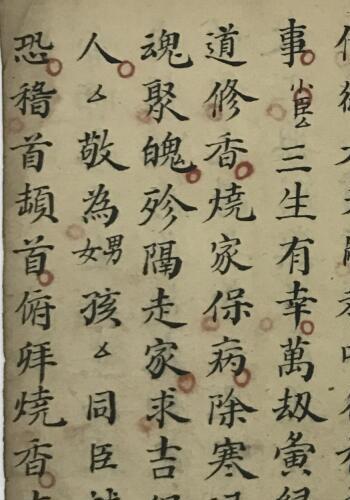 事。三生有幸。萬刼夤
道修香。燒家保病。除寒
魂聚魄。殄隔走家。求吉
人。厶敬為男女孩厶同臣
恐。稽首頓首。俯拜燒香。